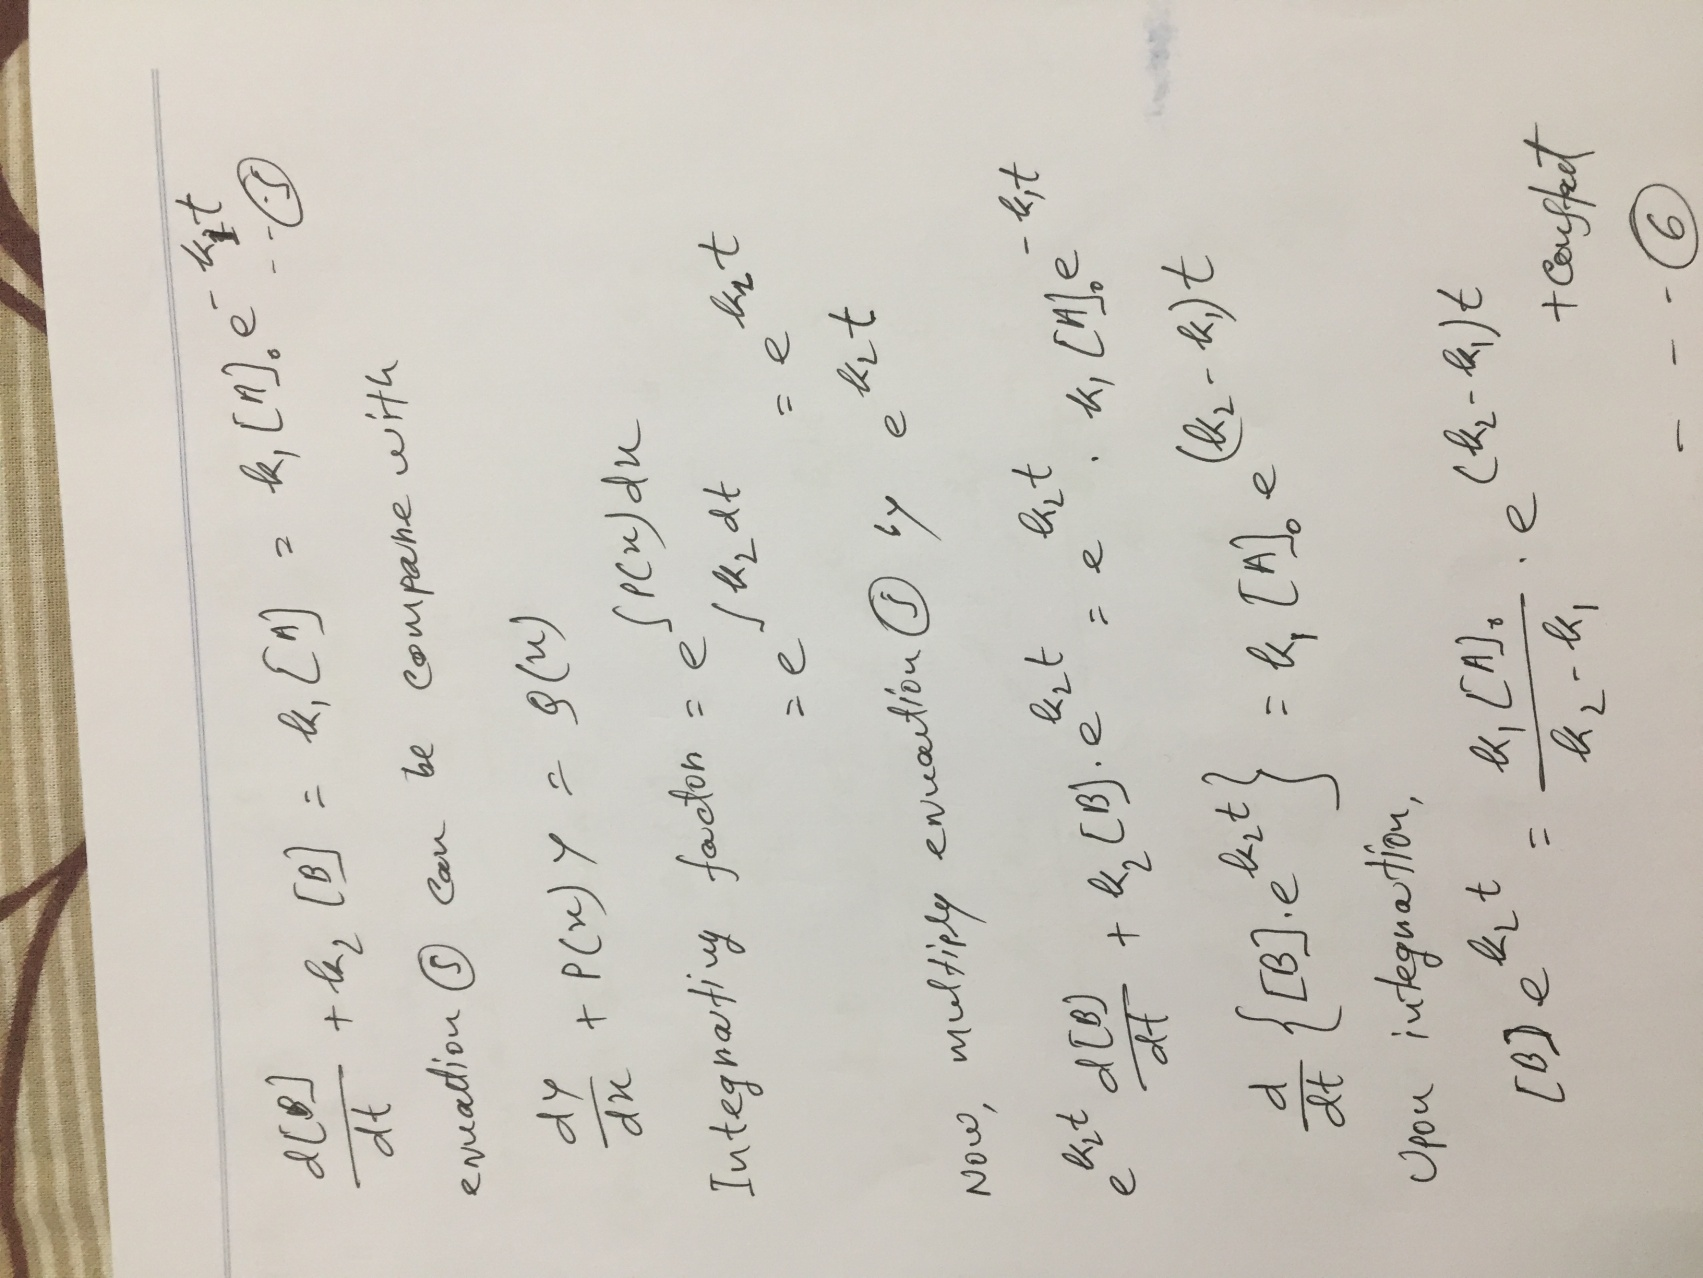 d[B]/dt + k₂[B] = k₁[A] = k₁[A]₀e^{-k₁t} -- ⑤
equation ⑤ can be compare with
dy/dx + P(x)y = Q(x)
Integrating factor = e^{∫P(x)dx}
= e^{∫k₂dt} = e^{k₂t}
Now, multiply equation ⑤ by e^{k₂t}
e^{k₂t} d[B]/dt + k₂[B].e^{k₂t} = e^{k₂t} . k₁[A]₀e^{-k₁t}
d/dt {[B].e^{k₂t}} = k₁[A]₀e^{(k₂-k₁)t}
Upon integration,
[B]e^{k₂t} = k₁[A]₀/k₂-k₁ . e^{(k₂-k₁)t}
+ constant
--- ⑥